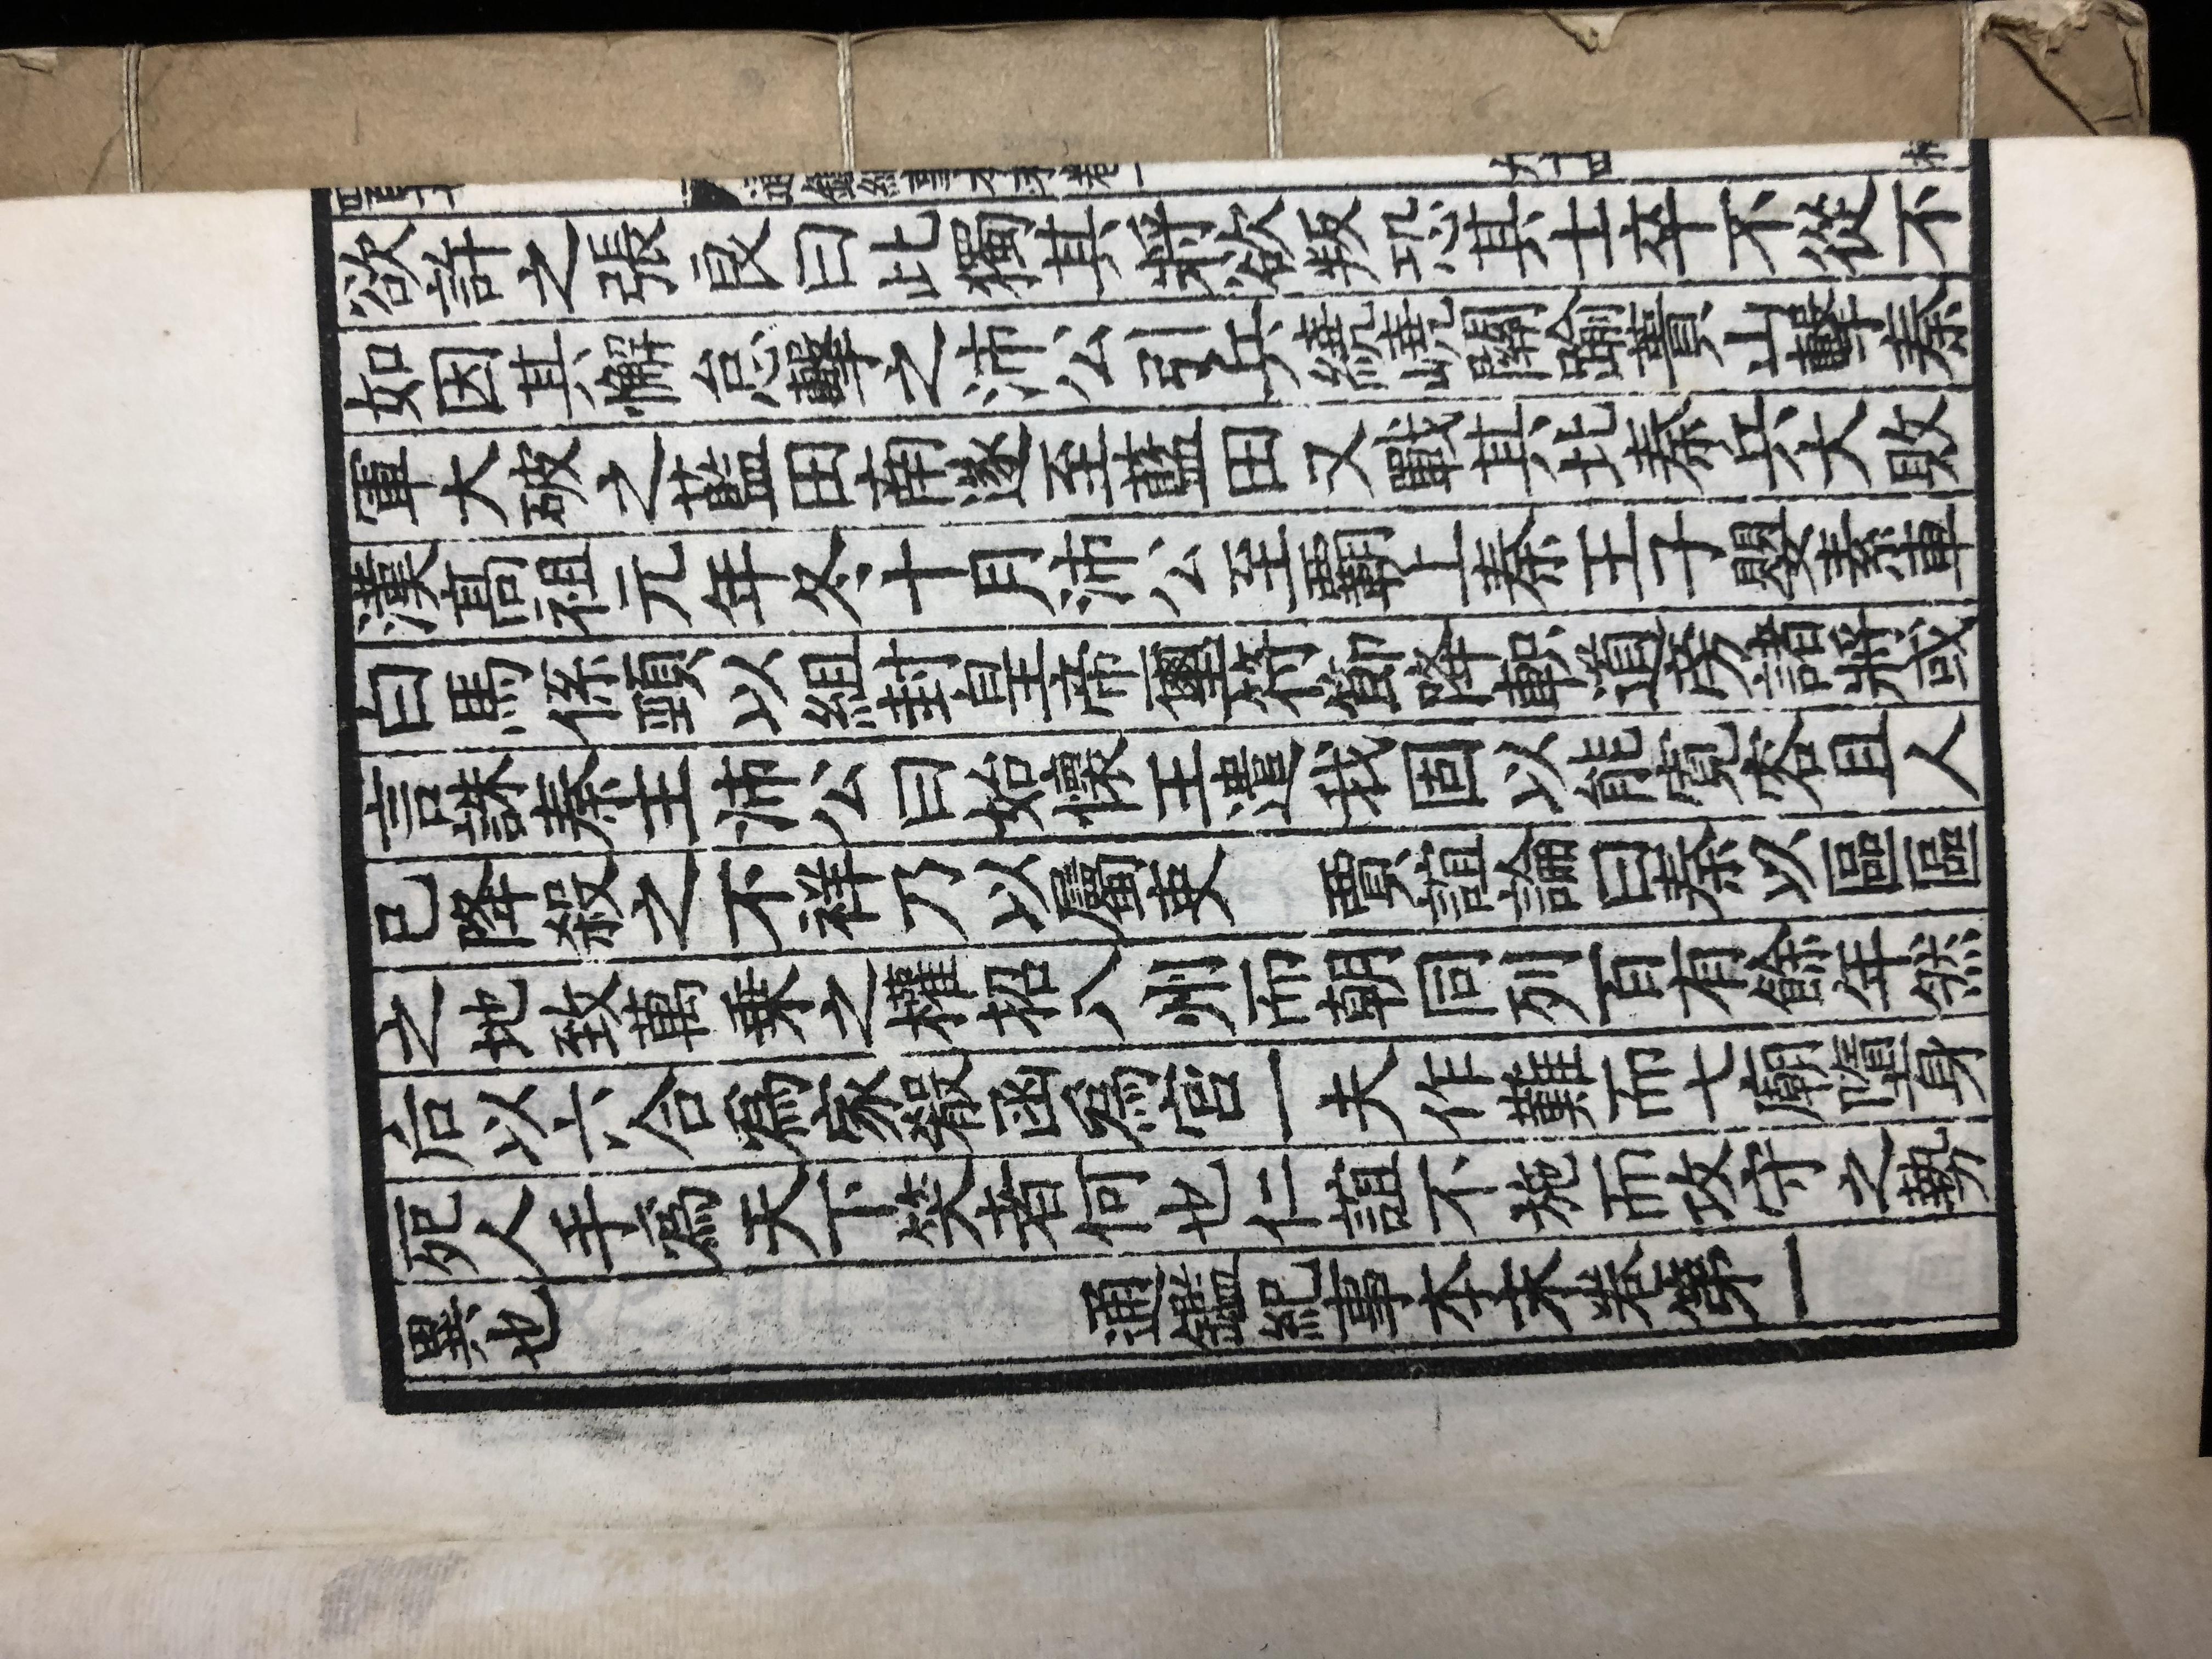 欲許之張良曰此獨其將欲叛恐其士卒不從不
如因其懈怠擊之沛公引兵繞嶢關踰蕢山擊秦
軍大破之藍田南遂至藍田又戰其北秦兵大敗
漢高祖元年冬十月沛公至霸上秦王子嬰素車
白馬係頸以組封皇帝璽符節降軹道旁諸將或
言誅秦王沛公曰始懷王遣我固以能寬容且人
已降殺之不祥乃以屬吏　賈誼論曰秦以區區
之地致萬乘之權招八州而朝同列百有餘年然
后以六合爲家殽函爲宮一夫作難而七廟墮身
死人手爲天下笑者何也仁誼不施而攻守之勢
異也
通鑑紀事本末卷第一